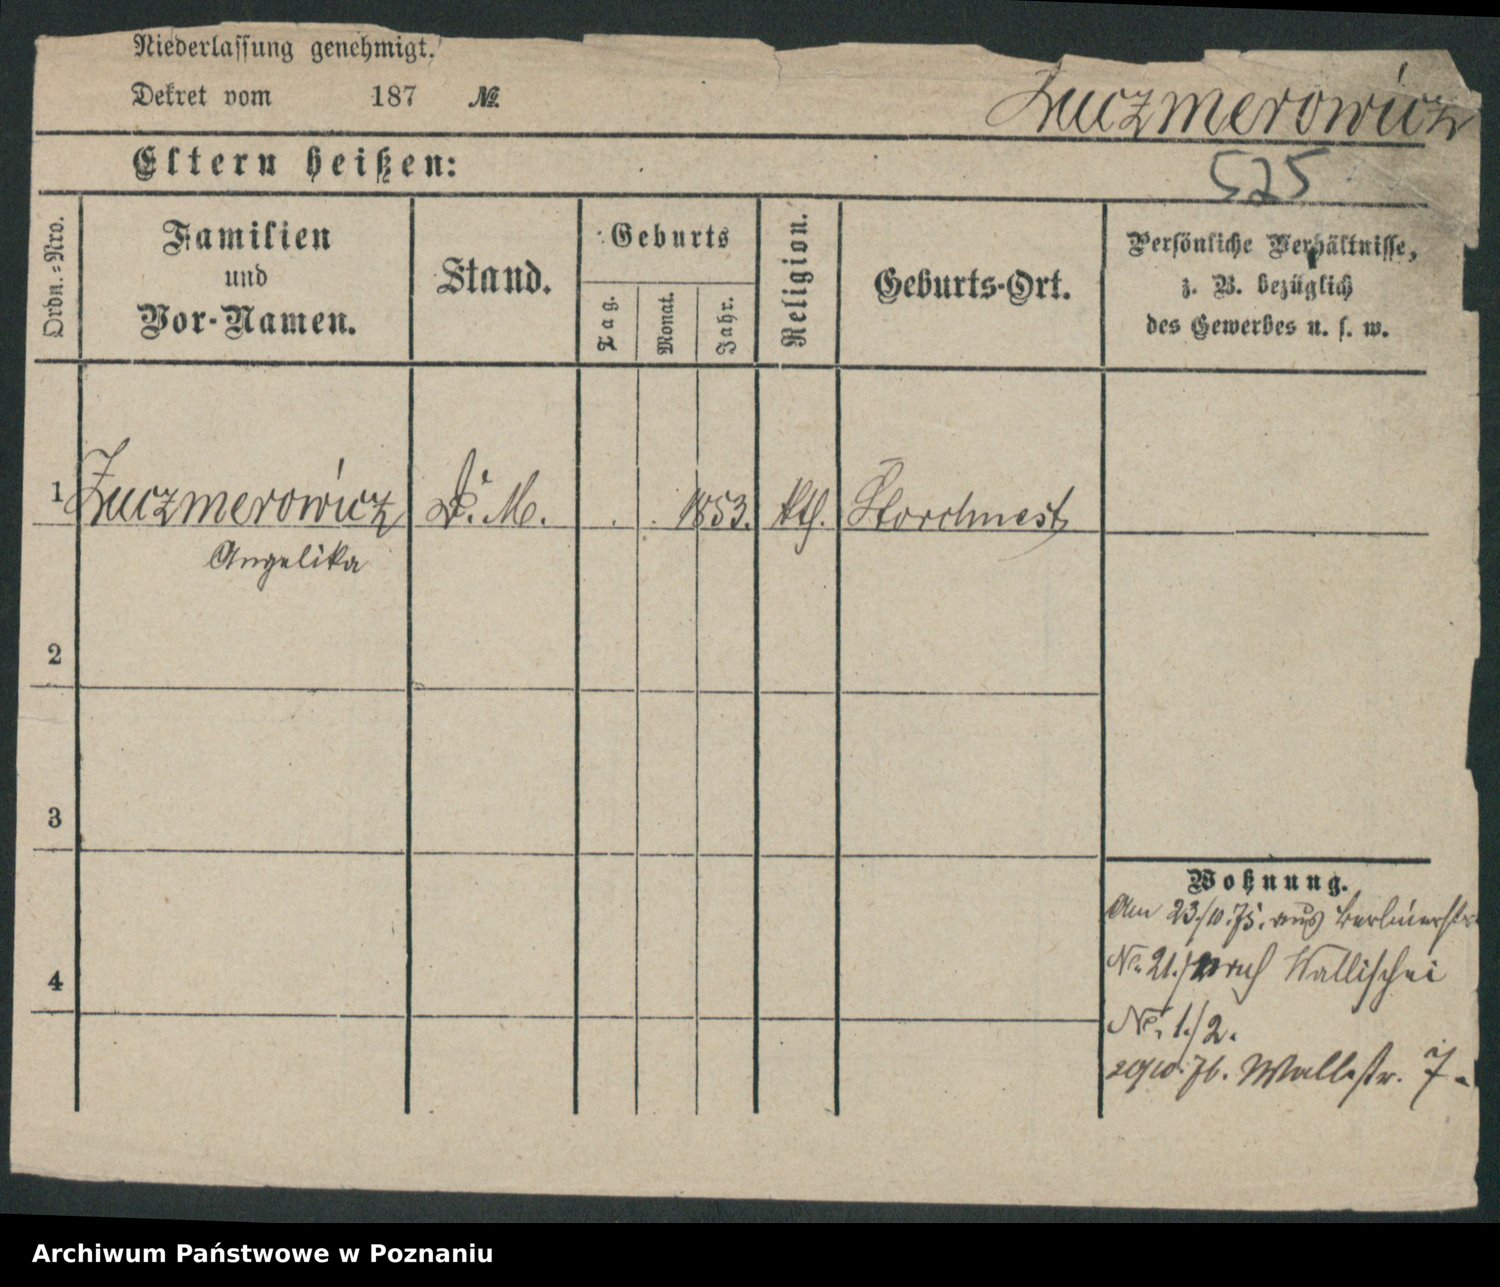 Niederlassung genehmigt.
Dekret vom 187 №.
Zuczmerowicz
Eltern heißen:
525
Ordn.=Nro.
Familien
und
Vor-Namen.
Stand.
Geburts
Tag.
Monat.
Jahr.
Religion.
Geburts-Ort.
Persönliche Verhältnisse,
z. B. bezüglich
des Gewerbes u. s. w.
1 Zuczmerowicz D. M. . . 1853. kth. Storchnest
Angelika
2
3
Wohnung.
Am 23./10.75. aus Berlinerstr.
No. 21./ nach Wallischei
4
No. 1./2.
76. Wallstr. 7.
Archiwum Państwowe w Poznaniu